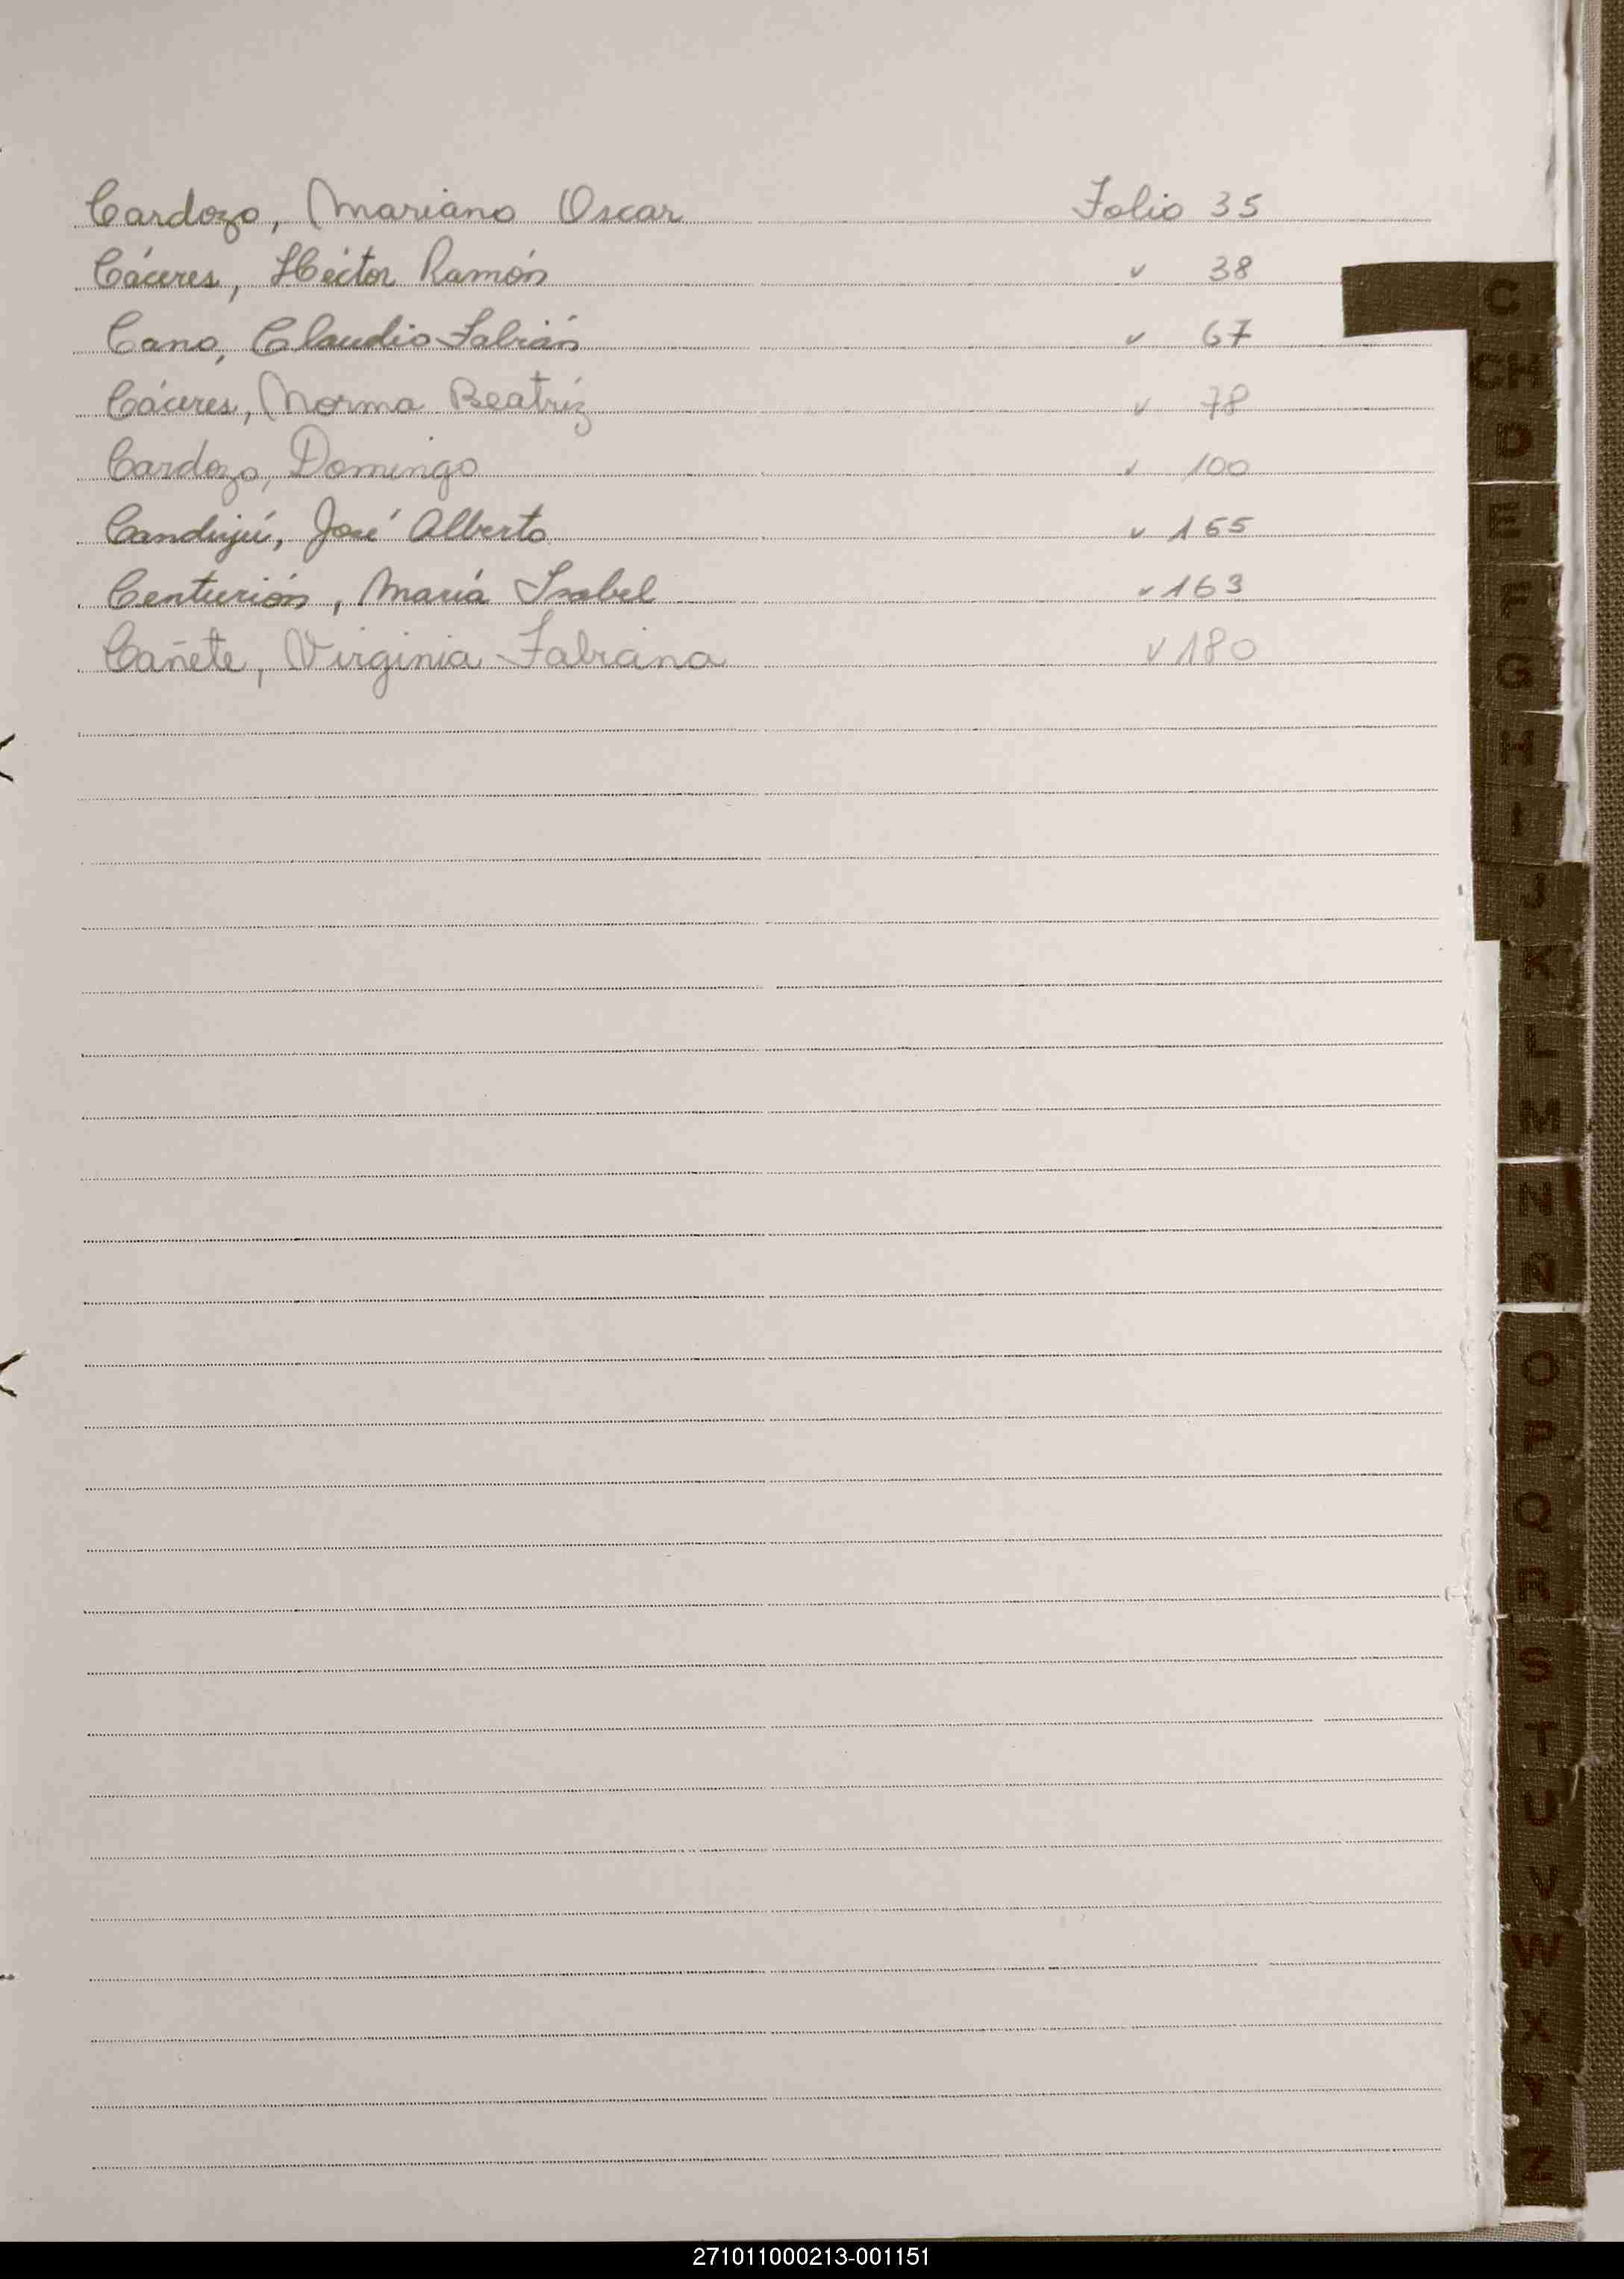 Cardozo, Mariano Oscar Folio 35
Cáceres, Héctor Ramón v 38
Cano, Claudio Fabián v 67
Cáceres, Norma Beatríz v 78
Cardozo, Domingo v 100
José Alberto v 155
Centurión, María Isabel v 163
Cañete, Virginia Fabiana v 180
C
CH
D
E
F
G
H
I
J
K
L
M
N
Ñ
O
P
Q
R
S
T
U
V
W
X
Y
Z
271011000213-001151